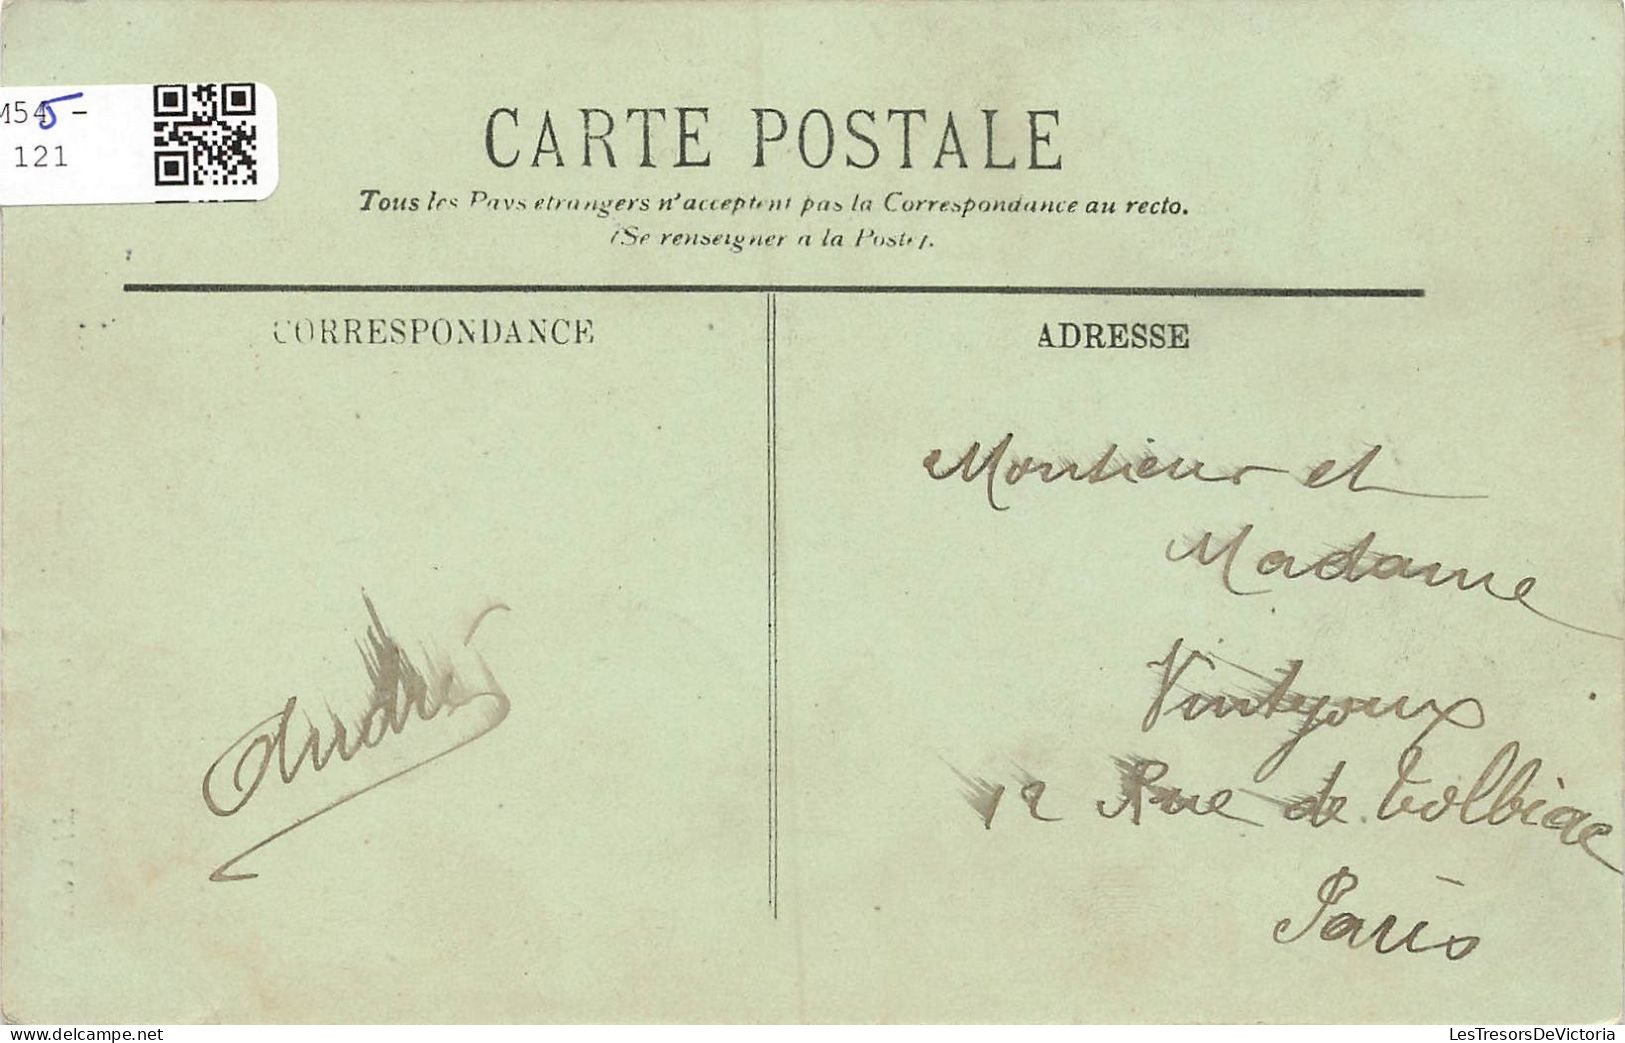 M545 -
121
CARTE POSTALE
Tous les Pays etrangers n'acceptent pas la Correspondance au recto.
(Se renseigner a la Poste).
CORRESPONDANCE
ADRESSE
Monsieur et
Madame
Vintejoux
12 Rue de Tolbiac
Paris
André
delcampe.net
LesTresorsDeVictoria